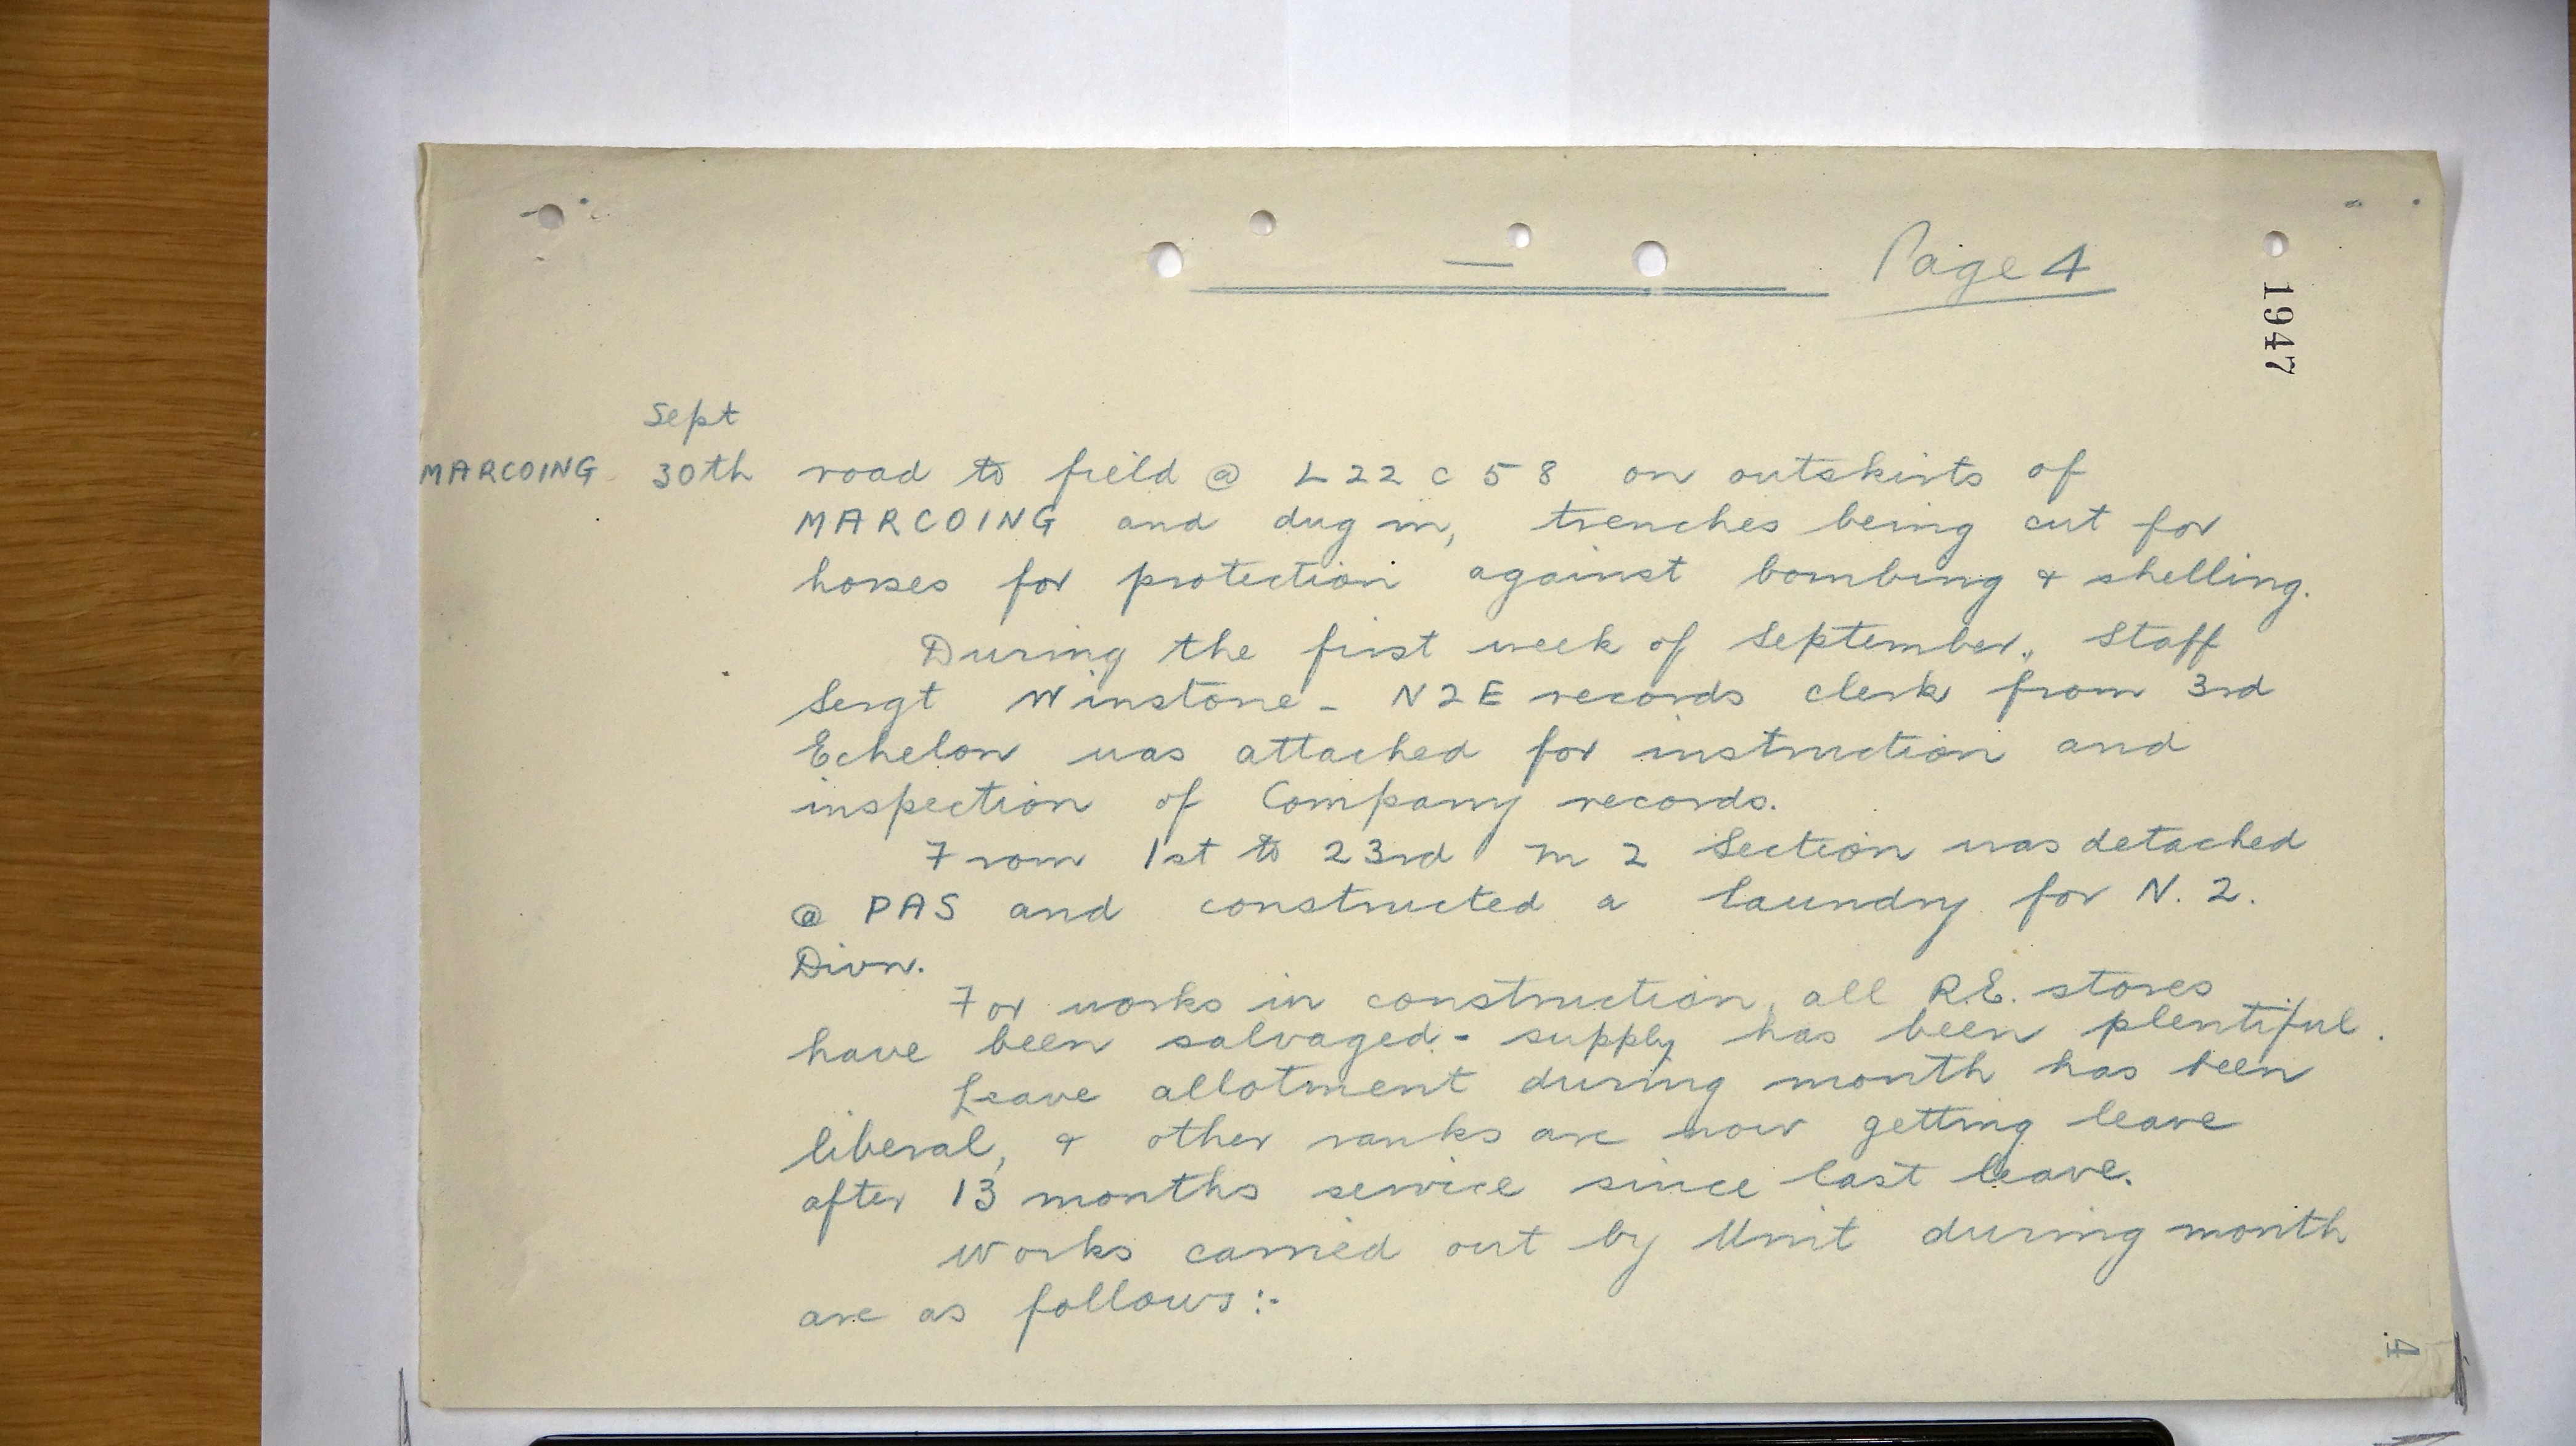 Page 4
1947
Sept
MARCOING - 30th road to field @ L22 c 5 8 on outskirts of
MARCOING and dug in, trenches being cut for
horses for protection against bombing & shelling.
During the first week of September, Staff
Sergt Winstone - NZE records clerk from 3rd
Echelon was attached for instruction and
inspection of Company records.
From 1st to 23rd 2 Section was detached
@ PAS and constructed a laundry for N.Z.
Divn.
For works in construction, all R.E. stores
have been salvaged - supply has been plentiful.
Leave allotment during month has been
liberal, & other ranks are now getting leave
after 13 months service since last leave.
Works carried out by Unit during month
are as follows:-
4